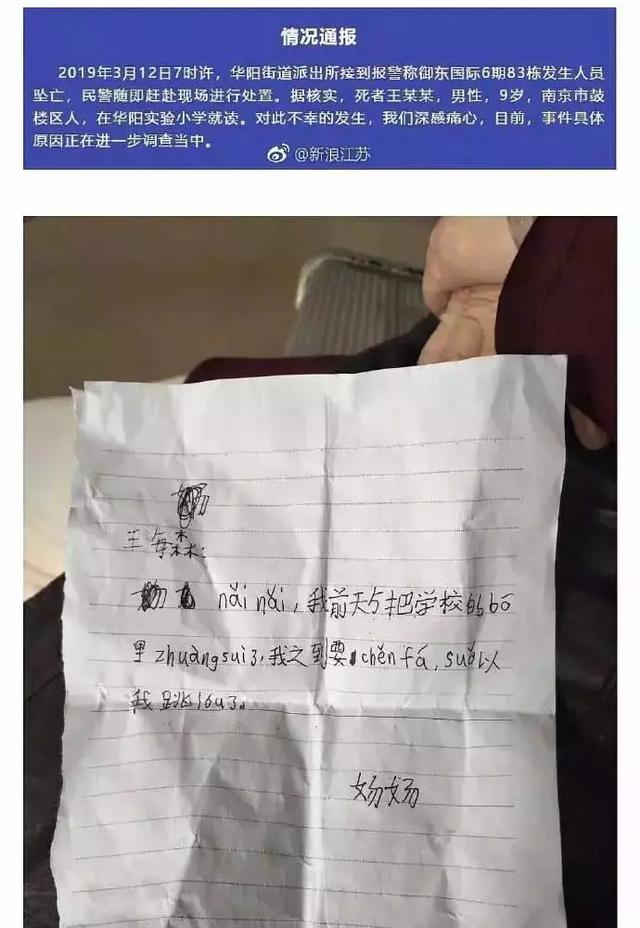 情况通报
2019年3月12日7时许，华阳街道派出所接到报警称御东国际6期83栋发生人员
坠亡，民警随即赶赴现场进行处置。据核实，死者王某某，男性，9岁，南京市鼓
楼区人，在华阳实验小学就读。对此不幸的发生，我们深感痛心，目前，事件具体
原因正在进一步调查当中。
@新浪江苏
王每森：
nǎi nǎi，我前天把学校的bō
里zhuàng suì了，我之到要chěn fá，suǒ以
我跳lóu了。
妈妈